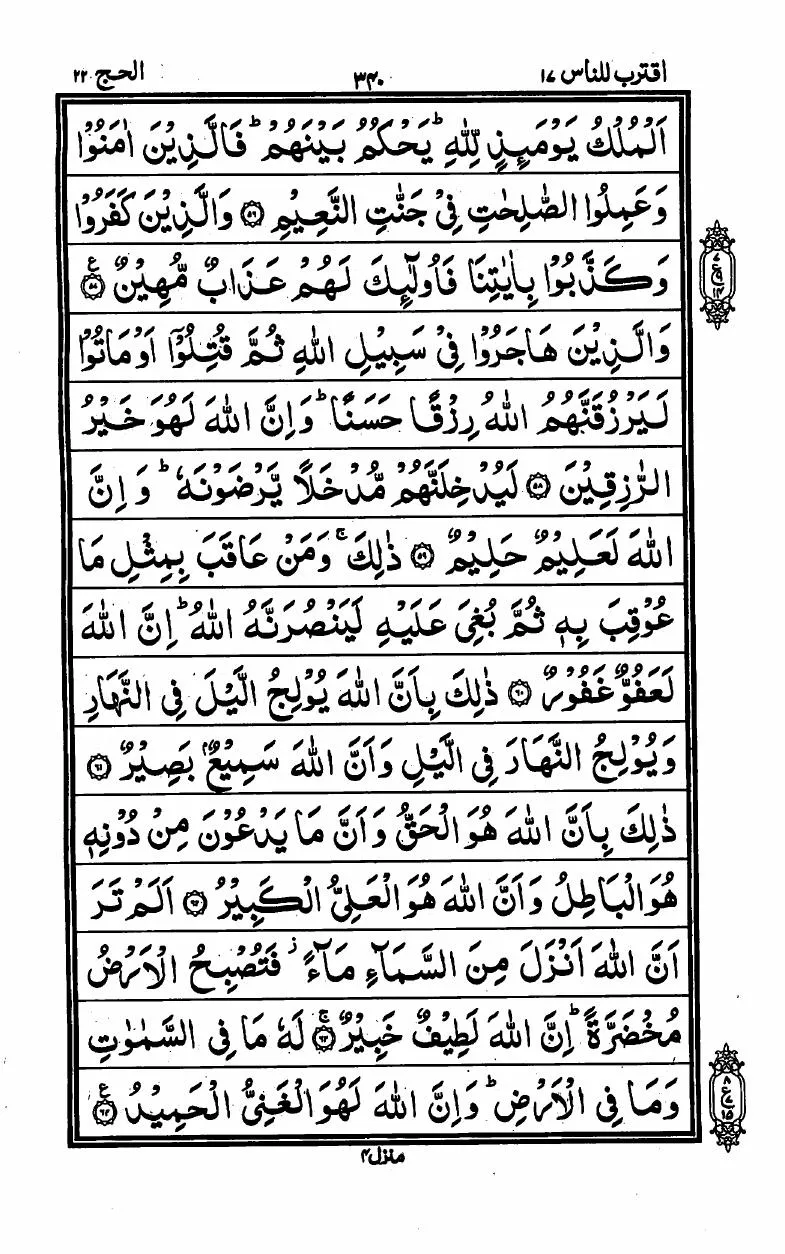 اقترب للناس ١٧
٣٤٠
الحج ٢٢
اَلْمُلْكُ يَوْمَئِذٍ لِّلّٰهِ ؕ يَحْكُمُ بَيْنَهُمْ ؕ فَالَّذِيْنَ اٰمَنُوْا
وَعَمِلُوا الصّٰلِحٰتِ فِيْ جَنّٰتِ النَّعِيْمِ ﴿٥٦﴾ وَالَّذِيْنَ كَفَرُوْا
وَكَذَّبُوْا بِاٰيٰتِنَا فَاُولٰٓئِكَ لَهُمْ عَذَابٌ مُّهِيْنٌ ﴿٥٧﴾ ع
وَالَّذِيْنَ هَاجَرُوْا فِيْ سَبِيْلِ اللّٰهِ ثُمَّ قُتِلُوْۤا اَوْ مَاتُوْا
لَيَرْزُقَنَّهُمُ اللّٰهُ رِزْقًا حَسَنًا ؕ وَاِنَّ اللّٰهَ لَهُوَ خَيْرُ
الرّٰزِقِيْنَ ﴿٥٨﴾ لَيُدْخِلَنَّهُمْ مُّدْخَلًا يَّرْضَوْنَهٗ ؕ وَاِنَّ
اللّٰهَ لَعَلِيْمٌ حَلِيْمٌ ﴿٥٩﴾ ذٰلِكَ ۚ وَمَنْ عَاقَبَ بِمِثْلِ مَا
عُوْقِبَ بِهٖ ثُمَّ بُغِيَ عَلَيْهِ لَيَنْصُرَنَّهُ اللّٰهُ ؕ اِنَّ اللّٰهَ
لَعَفُوٌّ غَفُوْرٌ ﴿٦٠﴾ ذٰلِكَ بِاَنَّ اللّٰهَ يُوْلِجُ الَّيْلَ فِي النَّهَارِ
وَيُوْلِجُ النَّهَارَ فِي الَّيْلِ وَاَنَّ اللّٰهَ سَمِيْعٌۢ بَصِيْرٌ ﴿٦١﴾
ذٰلِكَ بِاَنَّ اللّٰهَ هُوَ الْحَقُّ وَاَنَّ مَا يَدْعُوْنَ مِنْ دُوْنِهٖ
هُوَ الْبَاطِلُ وَاَنَّ اللّٰهَ هُوَ الْعَلِيُّ الْكَبِيْرُ ﴿٦٢﴾ اَلَمْ تَرَ
اَنَّ اللّٰهَ اَنْزَلَ مِنَ السَّمَآءِ مَآءً ؗ فَتُصْبِحُ الْاَرْضُ
مُخْضَرَّةً ؕ اِنَّ اللّٰهَ لَطِيْفٌ خَبِيْرٌ ﴿٦٣﴾ ۚ لَهٗ مَا فِي السَّمٰوٰتِ
وَمَا فِي الْاَرْضِ ؕ وَاِنَّ اللّٰهَ لَهُوَ الْغَنِيُّ الْحَمِيْدُ ﴿٦٤﴾ ع
٧
ع
١٤
٨
ع
١٥
منزل ٤